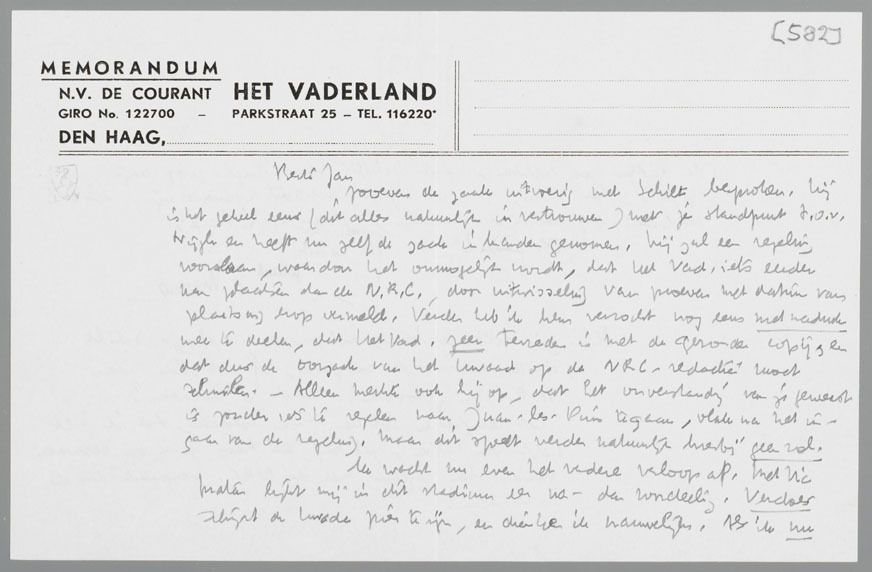 [582]
MEMORANDUM
N.V. DE COURANT HET VADERLAND
GIRO No. 122700 – PARKSTRAAT 25 – TEL. 116220*
DEN HAAG,
Beste Jan
zooeven de zaak uitvoerig met Schilt besproken. Hij
is het geheel eens (dit alles natuurlijk in vertrouwen) met je standpunt t.o.v.
en heeft nu zelf de zaak in handen genomen. Hij zal een regeling
voorslaan, waardoor het onmogelijk wordt, dat het Vad. iets eerder
kan plaatsen dan de N.R.C., door uitwisseling van proeven met datum van
plaatsing erop vermeld. Verder heb ik hem verzocht nog eens met nadruk
mee te deelen, dat het Vad. zeer tevreden is met de gezonden copij, en
dat dus de oorzaak van het kwaad op de N.R.C.-redactie moet
schuilen. – Alleen merkte ook hij op, dat het onverstandig van je geweest
is zonder iets te regelen naar Juan-les-Pins te gaan, vlak na het in-
gaan van de regeling, maar dit speelt verder natuurlijk hierbij geen rol.
Ik wacht nu even het verdere verloop af. Met Vic
praten lijkt mij in dit stadium eer na- dan voordeelig. Verdoes
schijnt de kwade pier te zijn, en die ken ik nauwelijks. Als ik nu